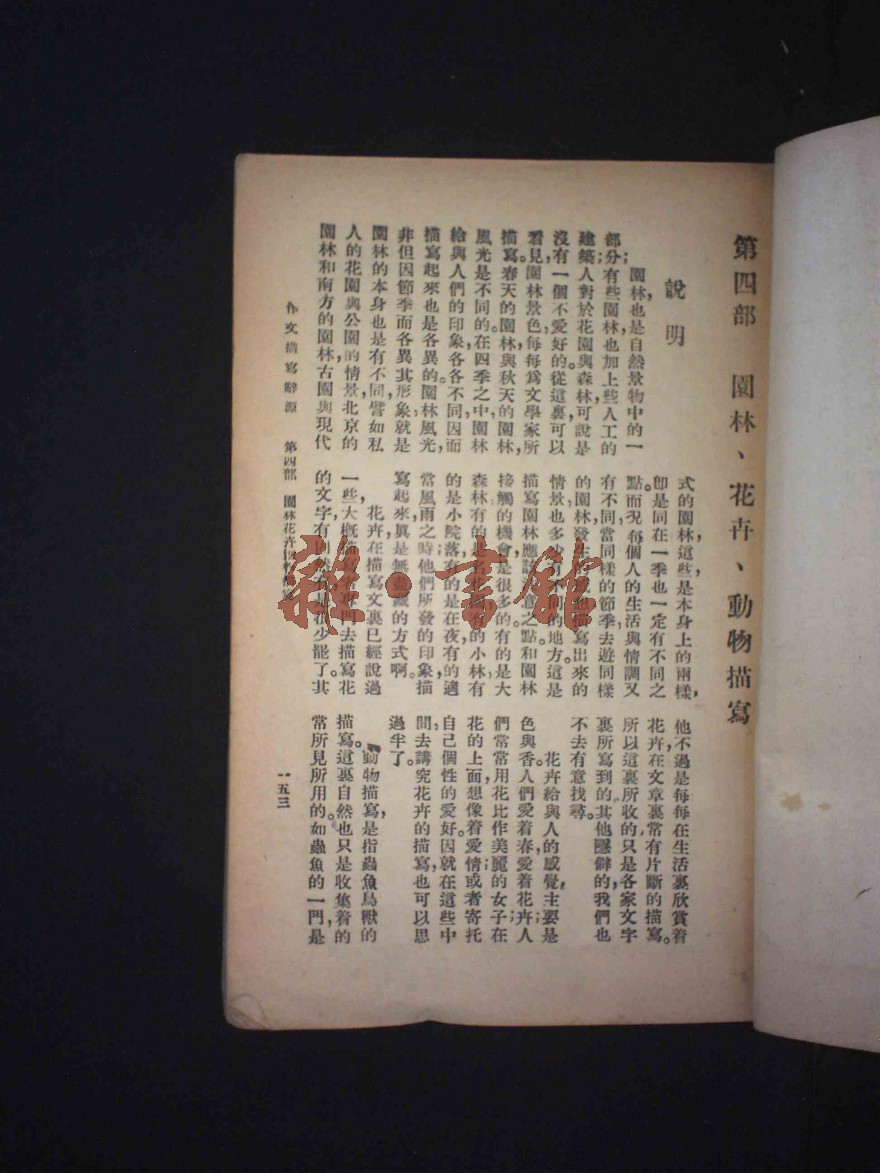 第四部　園林、花卉、動物描寫
說明
園林，也是自然景物中的一
部分；有些園林，也加上些人工的
建築；人對於花園與森林，可說是
沒有一個不愛好的。從這裏，可以
看見，園林景色，每每爲文學家所
描寫。春天的園林與秋天的園林，
風光是不同的。在四季之中，園林
給與人們的印象，各各不同，因而
描寫起來也是各異的。園林風光，
非但因節季而各異其形象，就是
園林的本身，也是有不同，譬如私
人的花園與公園的情景，北京的
園林和南方的園林，古園與現代
式的園林，這些是本身上的兩樣，
卽是同在一季，也一定有不同之
點。而況每個人的生活與情調又
有不同，當同樣的節季去遊同樣
的園林，發生的感想，描寫出來的
情景，也多少有不同的地方。這是
描寫園林應該注意之點。和園林
接觸的機會，是很多的，有的是大
森林，有的是名花園，有的小林，有
的是小院落，有的是在夜，有的適
當風雨之時，他們所發的印象，描
寫起來，眞是無盡藏的方式啊。
花卉，在描寫文裏，已經說過
一些，大槪描寫專門去描寫花
的文字，有固然有，是很少罷了。其
他不過是每每在生活裏欣賞着
花卉，在文章裏，常有片斷的描寫。
所以這裏所收的，只是各家文字
裏所寫到的，其他隱僻的，我們也
不去有意找尋。
花卉給與人的感覺，主要是
色與香。人們愛着春，愛着花卉；人
們常常用花比作美麗的女子；在
花的上面，想像着愛情，或者寄托
自己個性的愛好。因就在這些中
間去講究花卉的描寫，也可以思
過半了。
動物描寫，是指蟲魚鳥獸的
描寫。這裏自然也只是收集着的
常所見所用的。如蟲魚的一門，是
作文描寫辭源　第四部　園林花卉動物描寫
一五三
雜·書館